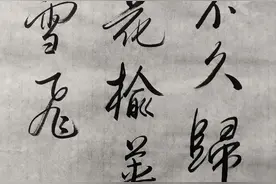 不久歸
花榆莢
雪飛